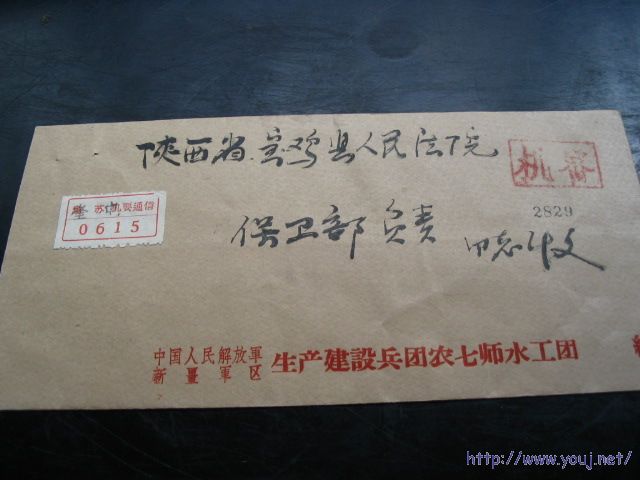 陕西省宝鸡县人民法院
机密
2829
机要通信
0615
保卫部负责同志收
中国人民解放軍
新疆軍区
生产建設兵团农七师水工团
http://www.youj.net/